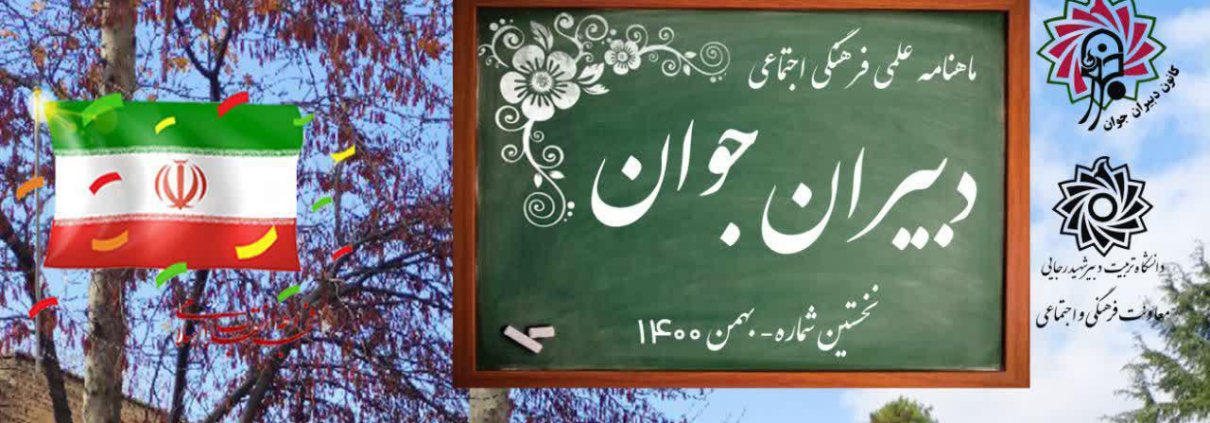 ماهنامه علمی فرهنگی اجتماعی
دبیران جوان
نخستین شماره - بهمن ۱۴۰۰
کانون دبیران جوان
دانشگاه تربیت دبیر شهید رجایی
معاونت فرهنگی و اجتماعی